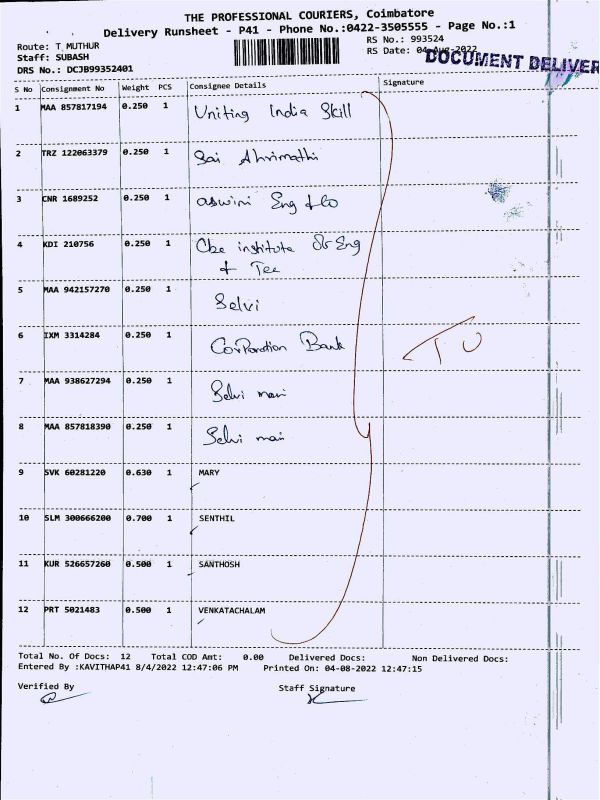 THE PROFESSIONAL COURIERS, Coimbatore
Delivery Runsheet - P41 - Phone No.:0422-3505555 - Page No.:1
Route: T MUTHUR RS No.: 993524
Staff: SUBASH RS Date: 04-Aug-2022
DOCUMENT DELIVER
DRS No.: DCJB99352401
S No Consignment No Weight PCS Consignee Details Signature
1 MAA 857817194 0.250 1 Uniting India Skill
2 TRZ 122063379 0.250 1 Sai
3 CNR 1689252 0.250 1 aswini Eng & co
4 KDI 210756 0.250 1 Cbe institute Of Eng
& Tec
5 MAA 942157270 0.250 1 Selvi
6 IXM 3314284 0.250 1 Corporation Bank
7 MAA 938627294 0.250 1 Selvi mani
8 MAA 857818390 0.250 1 Selvi mani
TU
9 SVK 60281220 0.630 1 MARY
10 SLM 300666200 0.700 1 SENTHIL
11 KUR 526657260 0.500 1 SANTHOSH
12 PRT 5021483 0.500 1 VENKATACHALAM
Total No. Of Docs: 12 Total COD Amt: 0.00 Delivered Docs: Non Delivered Docs:
Entered By :KAVITHAP41 8/4/2022 12:47:06 PM Printed On: 04-08-2022 12:47:15
Verified By Staff Signature